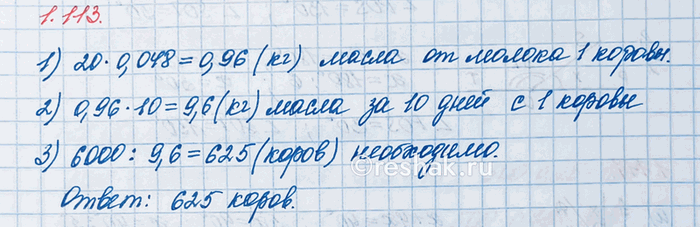 1.113.
1) 20·0,048=0,96 (кг) масла от молока 1 коровы.
2) 0,96·10=9,6 (кг) масла за 10 дней с 1 коровы
3) 6000 : 9,6 = 625 (коров) необходимо.
reshak.ru
Ответ: 625 коров.